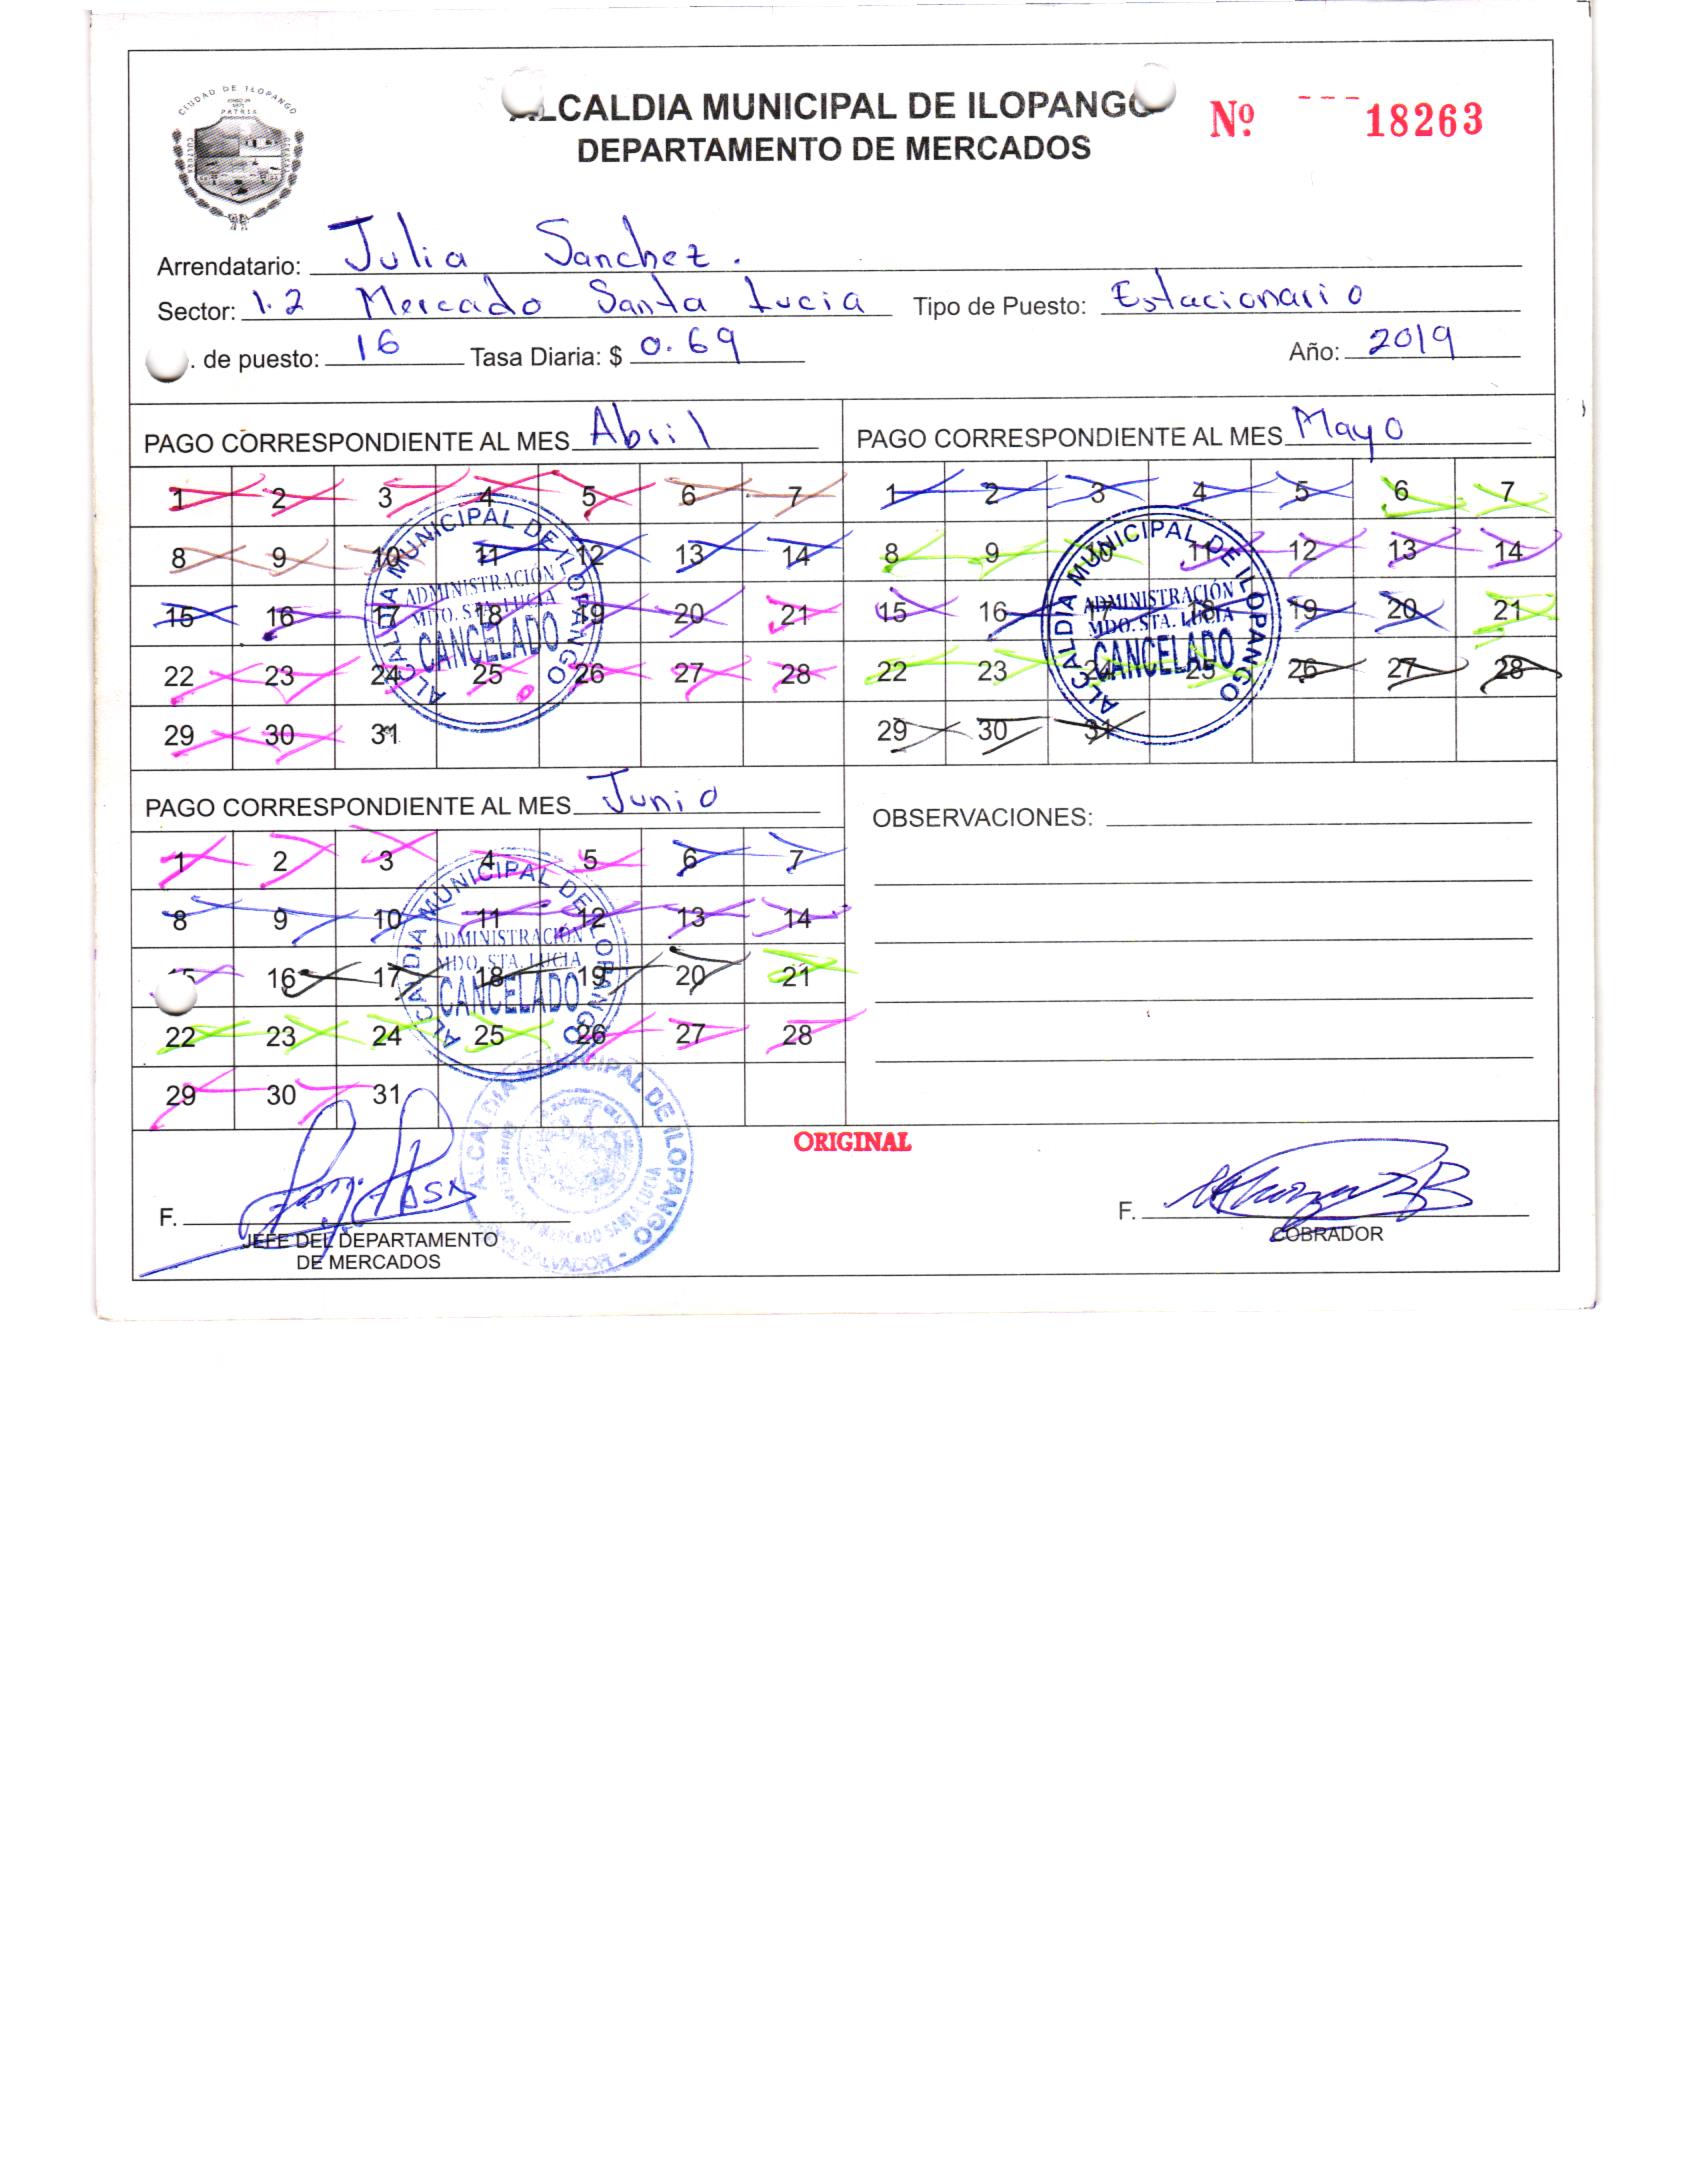 CIUDAD DE ILOPANGO
PATRIA
CULTURA
ALCALDIA MUNICIPAL DE ILOPANGO
DEPARTAMENTO DE MERCADOS
Nº 18263
Arrendatario: Julia Sanchez.
Sector: 1.2 Mercado Santa Lucia Tipo de Puesto: Estacionario
. de puesto: 16 Tasa Diaria: $ 0.69 Año: 2019
PAGO CORRESPONDIENTE AL MES Abril
1 2 3 4 5 6 7
8 9 10 11 12 13 14
15 16 17 18 19 20 21
22 23 24 25 26 27 28
29 30 31
ALCALDIA MUNICIPAL DE ILOPANGO
ADMINISTRACIÓN
MDO. STA. LUCIA
CANCELADO
PAGO CORRESPONDIENTE AL MES Mayo
1 2 3 4 5 6 7
8 9 10 11 12 13 14
15 16 17 18 19 20 21
22 23 24 25 26 27 28
29 30 31
ALCALDIA MUNICIPAL DE ILOPANGO
ADMINISTRACIÓN
MDO. STA. LUCIA
CANCELADO
PAGO CORRESPONDIENTE AL MES Junio
1 2 3 4 5 6 7
8 9 10 11 12 13 14
15 16 17 18 19 20 21
22 23 24 25 26 27 28
29 30 31
ALCALDIA MUNICIPAL DE ILOPANGO
ADMINISTRACIÓN
MDO. STA. LUCIA
CANCELADO
OBSERVACIONES:
ORIGINAL
ALCALDIA MUNICIPAL DE ILOPANGO
MERCADO SANTA LUCIA
SALVADOR
F.
JEFE DEL DEPARTAMENTO
DE MERCADOS
F.
COBRADOR